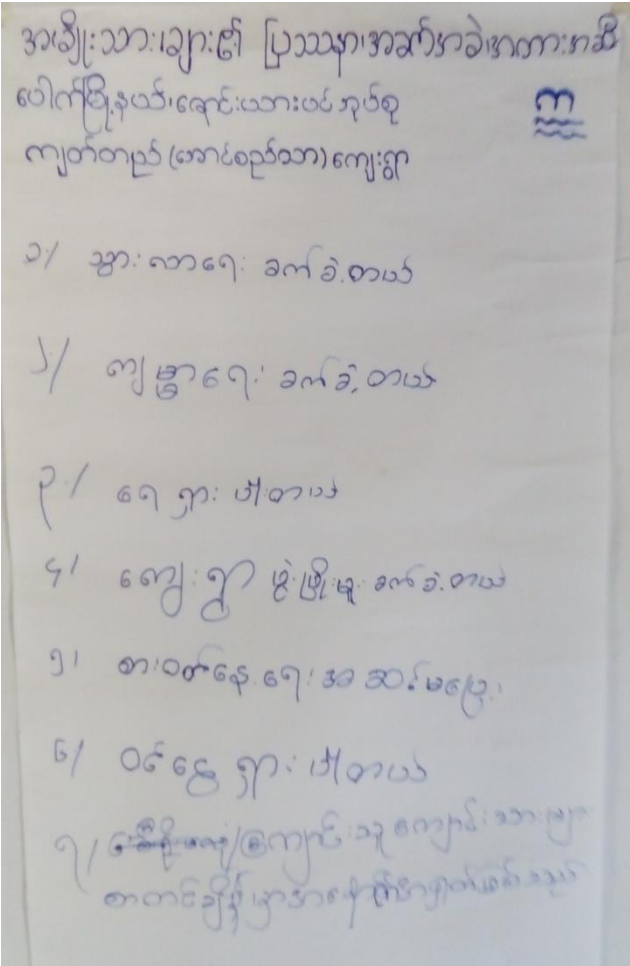 အမျိုးသားများ၏ ပြဿနာ၊အခက်အခဲ၊အတားအဆီး
က
ပေါက်မြို့နယ်၊ချောင်းယားပင်အုပ်စု
ကျတ်တည် (အောင်စည်သာ) ကျေးရွာ
၁/ သွားလာရေး ခက်ခဲ့တယ်
၂/ ကျမ္မာရေး ခက်ခဲ့တယ်
၃/ ရေ ရှားပါးတယ်
၄/ ကျေးရွာ ဖွဲ့ဖြိုးမှု ခက်ခဲ့တယ်
၅/ စားဝတ်နေရေး အဆင်မပြေ
၆/ ဝင်ငွေ ရှားပါးတယ်
၇/ ကျောင်းသူကျောင်းသားများ